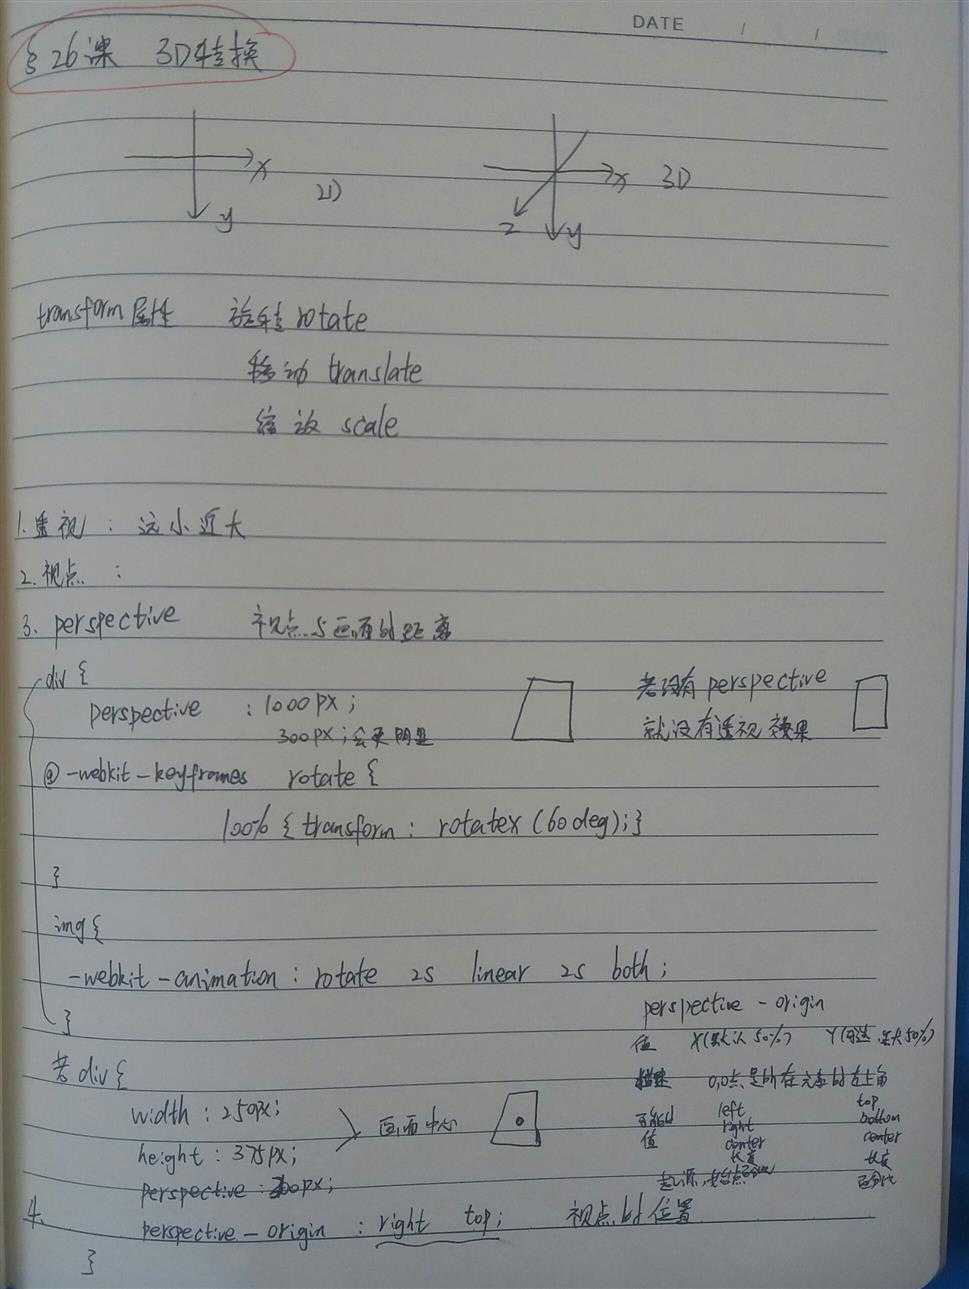 DATE / /
§26课 3D转换
x
y
2D
x
3D
z
y
transform属性 旋转 rotate
移动 translate
缩放 scale
1.透视: 远小近大
2.视点:
3. perspective 视点与画面的距离
div {
perspective :1000px;
300px;会更明显
若没有perspective
就没有透视效果
@-webkit-keyframes rotate {
100% { transform: rotatex (60deg);}
}
img {
-webkit-animation: rotate 2s linear 2s both;
}
perspective-origin
值 X(默认50%) Y(可选,默认50%)
0,0点是所在元素的左上角
可能的值
left top
right bottom
center center
长度 长度
百分比
起源,起始点
若div {
width: 250px;
height: 375px;
画面中心
perspective: 300px;
4. perspective-origin : right top; 视点的位置
}